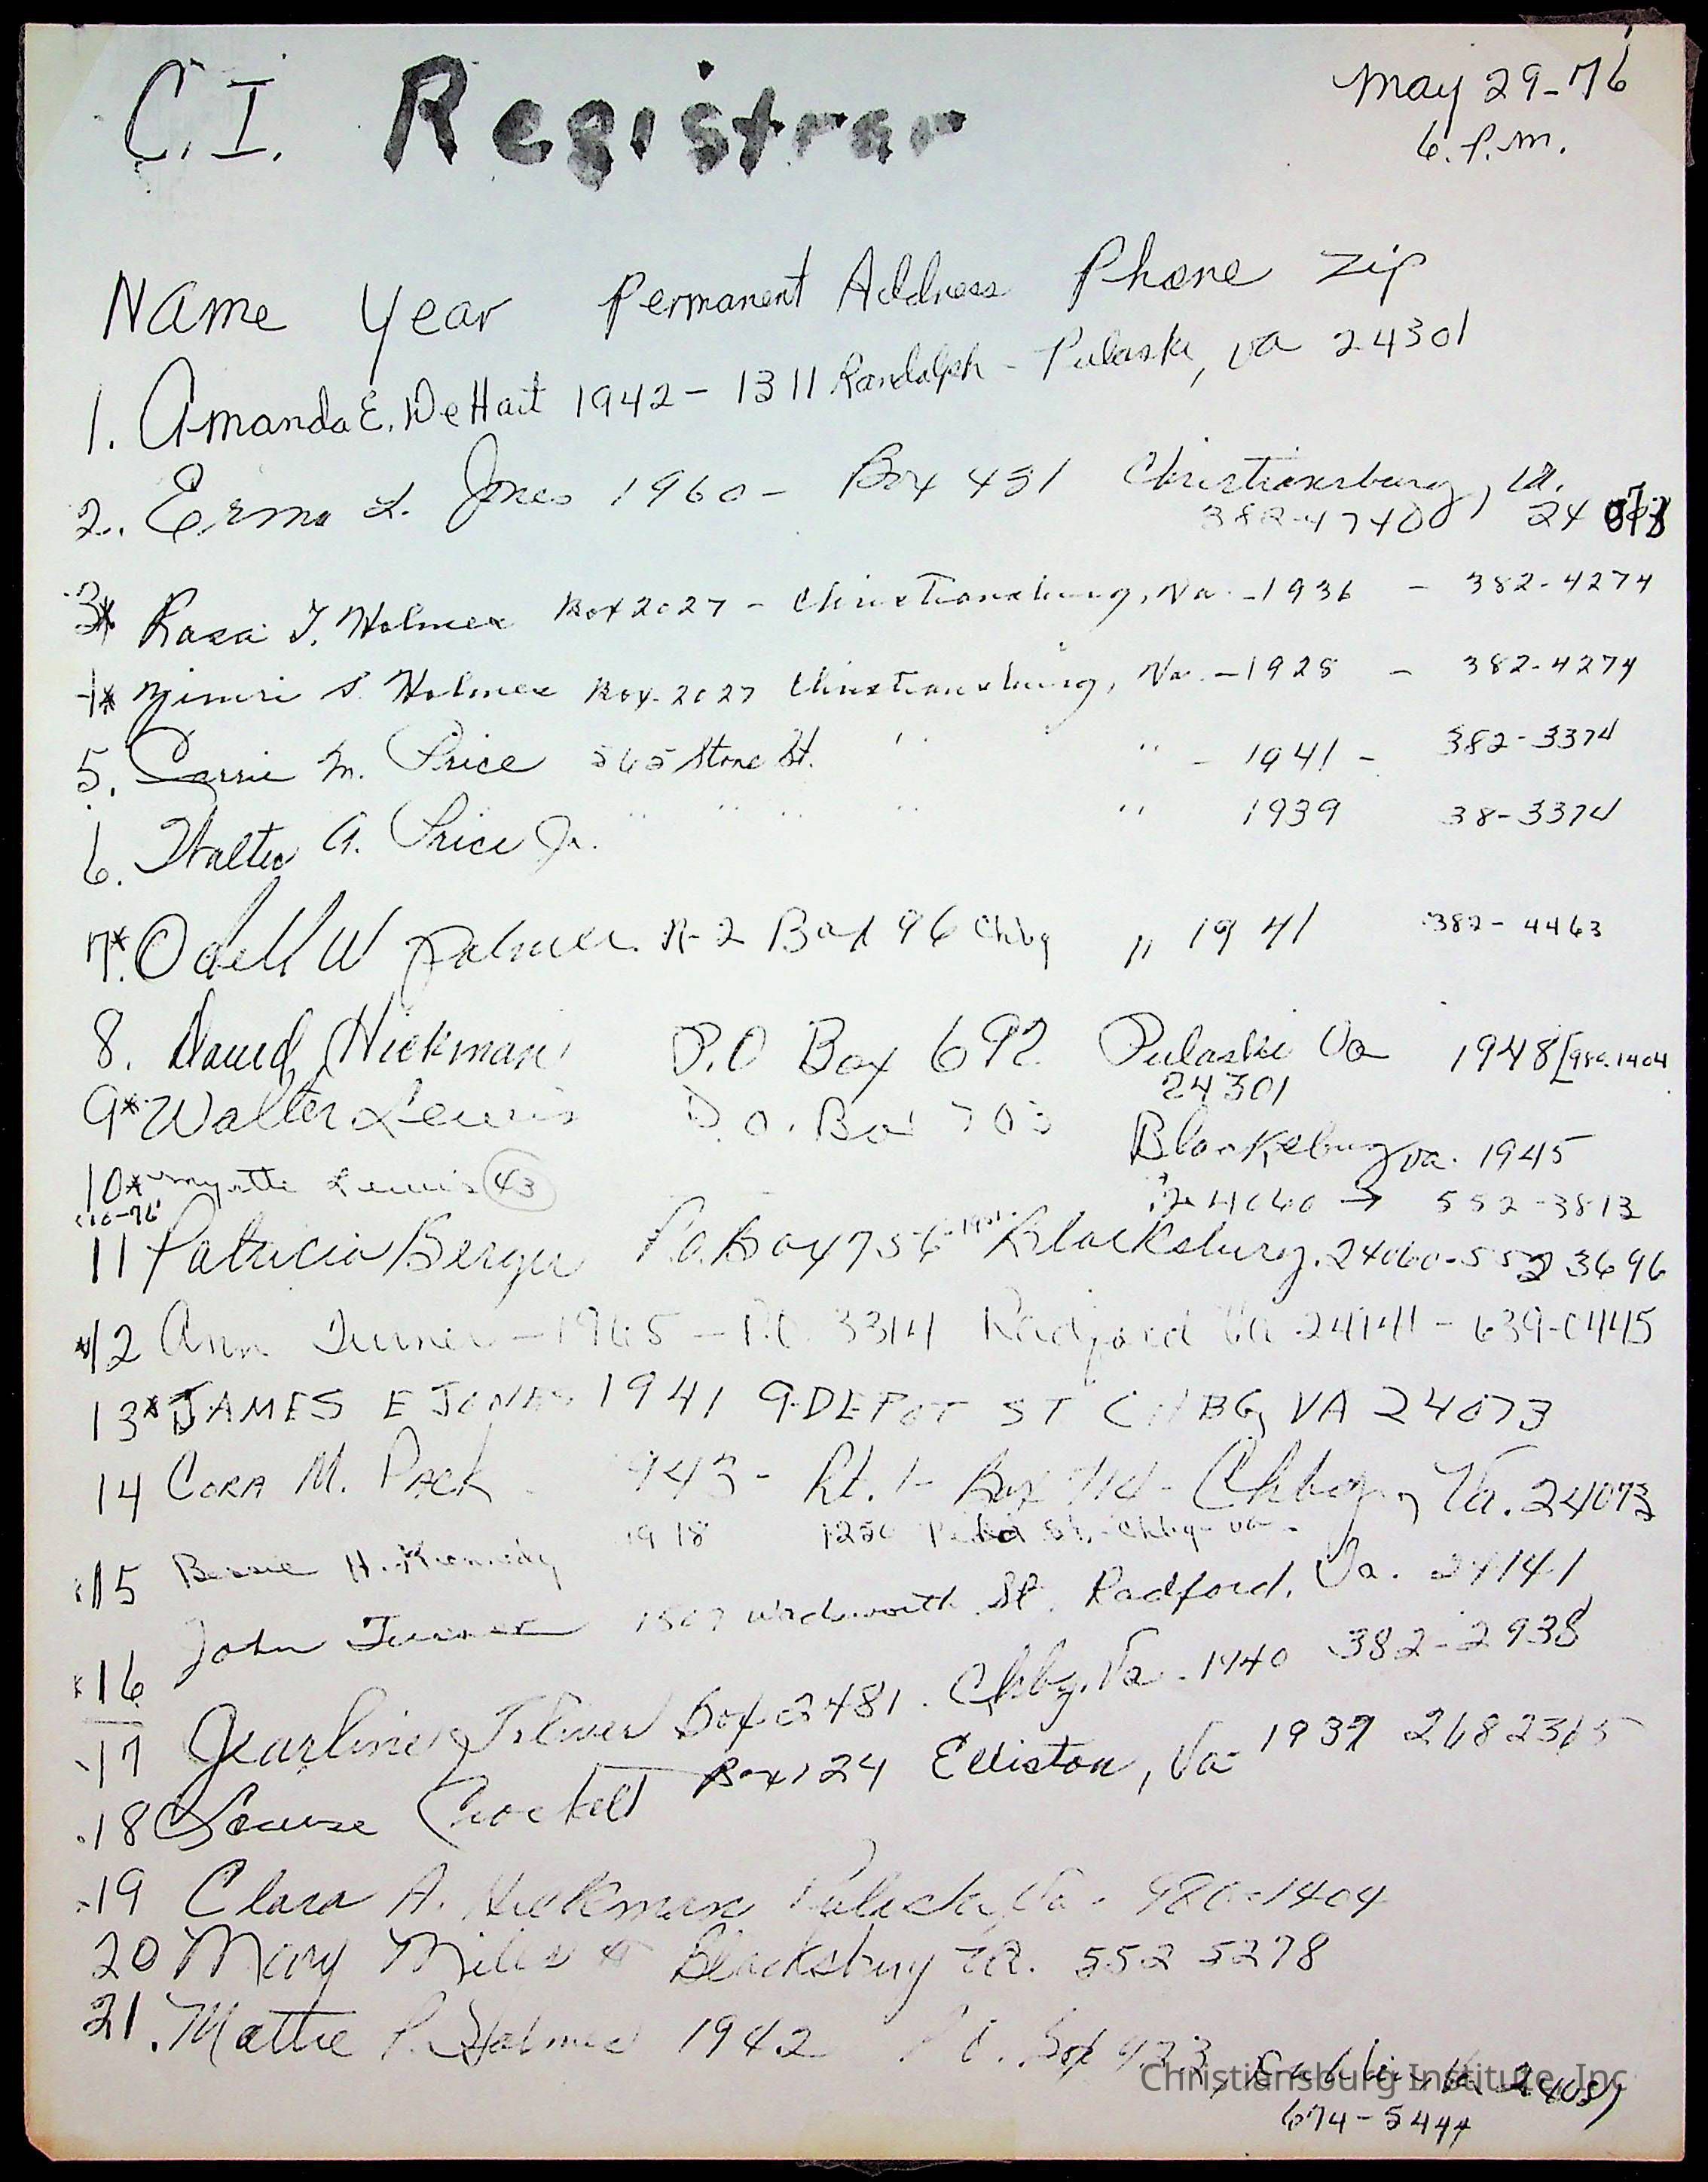 C.I. Registrar
May 29-76
6. P.m.
Name Year Permanent Address Phone Zip
1. Amanda E. DeHart 1942 - 1311 Randolph - Pulaski, Va 24301
2. Erma L. Jones 1960 - Box 431 Christiansburg, Va.
382-4740 24073
3* Rosa T. Holmes Box 2027 - Christiansburg, Va. - 1936 - 382-4274
4* Zimri S. Holmes Box 2027 Christiansburg, Va. - 1928 - 382-4274
5. Carrie M. Price 565 Stone St. " " - 1941 - 382-3374
6. Walter A. Price Jr. " " " " " 1939 38-3374
7* Odell W Palmer R-2 Box 96 Chbg " 1941 382-4463
8. David Hickman P.O Box 692 Pulaski Va 1948 [980-1404
24301
9* Walter Lewis P.O. Box 703 Blacksburg Va. 1945
10* Myrtle Lewis (43) 24060 → 552-3813
11 Patricia Berger P.O. Box 756 Blacksburg. 24060-552 3696
*12 Ann Turner - 1965 - P.O. 3314 Radford Va 24141 - 639-0445
13* JAMES E JONES 1941 9 DEPOT ST CHBG, VA 24073
14 CORA M. PACK 1943 - Rt. 1 - Box 714 - Chbg, Va. 24073
*15 Bessie H. Kennedy 1918 St. Chbg - Va -
*16 John Turner 1507 Wadsworth St. Radford, Va. 24141
17 Gearline Box 2481. Chbg, Va. 1940 382-2938
18 Louise Crockett Box 124 Elliston, Va - 1937 2682365
19 Clara A. Hickman Pulaski, Va - 980-1404
20 Mary Miles Blacksburg VA. 552 5278
21. Mattie P. Holmes 1942 P.O. Box 473, Dublin, Va 24084
674-5444
Christiansburg Institute, Inc